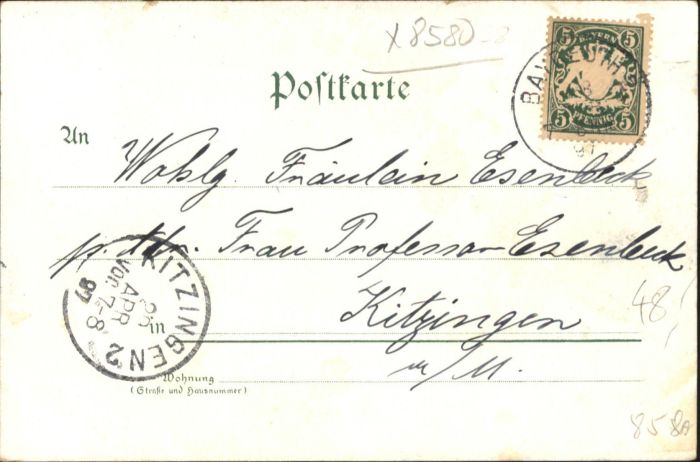 X 8580
5 BAYERN 5
5 PFENNIG 5
BAYREUTH
Postkarte
An
Wohlg. Fräulein Esenbeck
p. Adr. Frau Professor Esenbeck
KITZINGEN 2
25
APR
VOR. 7-8
97
in Kitzingen
a/M.
48,
Wohnung
(Straße und Hausnummer)
858A